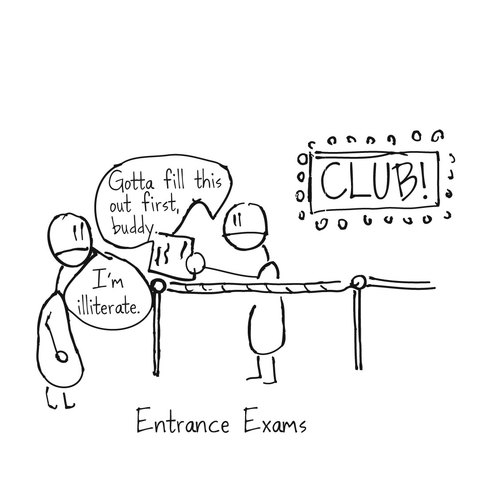 CLUB!
Gotta fill this
out first,
buddy.
I'm
illiterate.
Entrance Exams